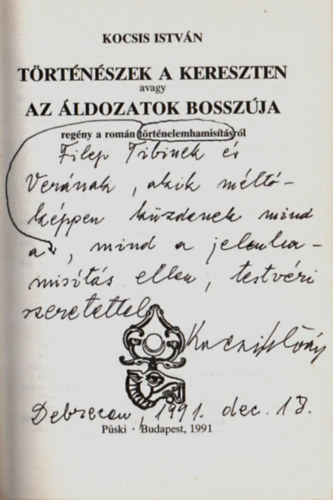 KOCSIS ISTVÁN
TÖRTÉNÉSZEK A KERESZTEN
avagy
AZ ÁLDOZATOK BOSSZÚJA
regény a román történelemhamisításról
Filep Tibinek és
Verának, akik méltó-
képpen küzdenek mind
a, mind a jelenha-
misítás ellen, testvéri
szeretettel
Kocsis István
Debrecen, 1991. dec. 17.
Püski · Budapest, 1991